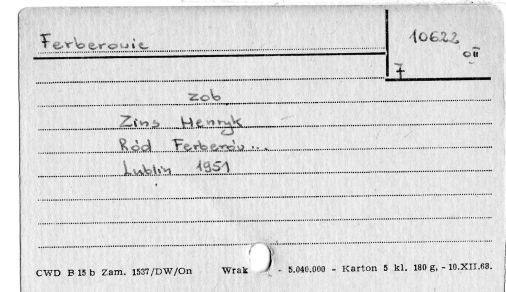 Ferberowie
10622
OII
7
zob
Zins Henryk
Ród Ferberów...
Lublin 1951
CWD B 15 b Zam. 1537/DW/On Wrak - 5.040.000 - Karton 5 kl. 180 g, - 10.XII.68.